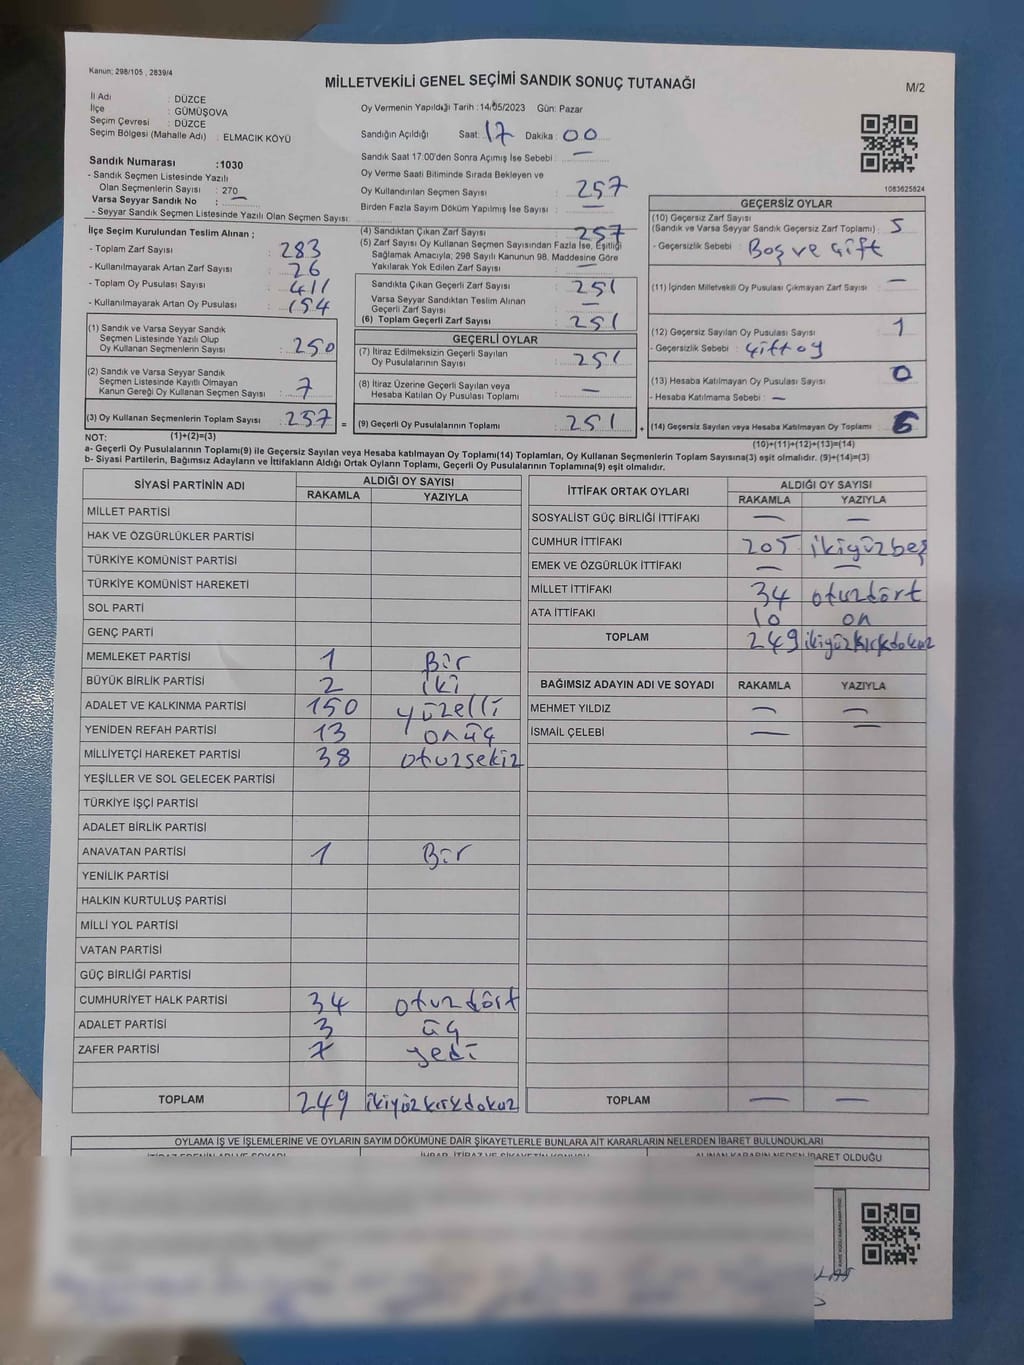 Kanun; 298/105 , 2839/4
MİLLETVEKİLİ GENEL SEÇİMİ SANDIK SONUÇ TUTANAĞI
M/2
İl Adı : DÜZCE
İlçe : GÜMÜŞOVA
Seçim Çevresi : DÜZCE
Seçim Bölgesi (Mahalle Adı) : ELMACIK KÖYÜ
Sandık Numarası :1030
- Sandık Seçmen Listesinde Yazılı
Olan Seçmenlerin Sayısı : 270
Varsa Seyyar Sandık No : —
- Seyyar Sandık Seçmen Listesinde Yazılı Olan Seçmen Sayısı:
Oy Vermenin Yapıldığı Tarih :14/05/2023 Gün: Pazar
Sandığın Açıldığı Saat: 17 Dakika : 00
Sandık Saat 17:00'den Sonra Açımış İse Sebebi : —
Oy Verme Saati Bitiminde Sırada Bekleyen ve
Oy Kullandırılan Seçmen Sayısı : 257
Birden Fazla Sayım Döküm Yapılmış İse Sayısı : —
1083625824
İlçe Seçim Kurulundan Teslim Alınan ;
- Toplam Zarf Sayısı : 283
- Kullanılmayarak Artan Zarf Sayısı : 26
- Toplam Oy Pusulası Sayısı : 411
- Kullanılmayarak Artan Oy Pusulası : 154
(1) Sandık ve Varsa Seyyar Sandık
Seçmen Listesinde Yazılı Olup
Oy Kullanan Seçmenlerin Sayısı : 250
(2) Sandık ve Varsa Seyyar Sandık
Seçmen Listesinde Kayıtlı Olmayan
Kanun Gereği Oy Kullanan Seçmen Sayısı : 7
(3) Oy Kullanan Seçmenlerin Toplam Sayısı : 257 =
(4) Sandıktan Çıkan Zarf Sayısı : 257
(5) Zarf Sayısı Oy Kullanan Seçmen Sayısından Fazla İse, Eşitliği
Sağlamak Amacıyla; 298 Sayılı Kanunun 98. Maddesine Göre
Yakılarak Yok Edilen Zarf Sayısı : —
Sandıkta Çıkan Geçerli Zarf Sayısı : 251
Varsa Seyyar Sandıktan Teslim Alınan
Geçerli Zarf Sayısı : —
(6) Toplam Geçerli Zarf Sayısı : 251
GEÇERLİ OYLAR
(7) İtiraz Edilmeksizin Geçerli Sayılan
Oy Pusulalarının Sayısı : 251
(8) İtiraz Üzerine Geçerli Sayılan veya
Hesaba Katılan Oy Pusulası Toplamı : —
(9) Geçerli Oy Pusulalarının Toplamı : 251 +
GEÇERSİZ OYLAR
(10) Geçersiz Zarf Sayısı
(Sandık ve Varsa Seyyar Sandık Geçersiz Zarf Toplamı) : 5
- Geçersizlik Sebebi : Boş ve çift
(11) İçinden Milletvekili Oy Pusulası Çıkmayan Zarf Sayısı : —
(12) Geçersiz Sayılan Oy Pusulası Sayısı : 1
- Geçersizlik Sebebi : çift oy
(13) Hesaba Katılmayan Oy Pusulası Sayısı : 0
- Hesaba Katılmama Sebebi : —
(14) Geçersiz Sayılan veya Hesaba Katılmayan Oy Toplamı : 6
NOT: (1)+(2)=(3)
(10)+(11)+(12)+(13)=(14)
a- Geçerli Oy Pusulalarının Toplamı(9) ile Geçersiz Sayılan veya Hesaba katılmayan Oy Toplamı(14) Toplamları, Oy Kullanan Seçmenlerin Toplam Sayısına(3) eşit olmalıdır. (9)+(14)=(3)
b- Siyasi Partilerin, Bağımsız Adayların ve İttifakların Aldığı Ortak Oyların Toplamı, Geçerli Oy Pusulalarının Toplamına(9) eşit olmalıdır.
SİYASİ PARTİNİN ADI ALDIĞI OY SAYISI
RAKAMLA YAZIYLA
MİLLET PARTİSİ
HAK VE ÖZGÜRLÜKLER PARTİSİ
TÜRKİYE KOMÜNİST PARTİSİ
TÜRKİYE KOMÜNİST HAREKETİ
SOL PARTİ
GENÇ PARTİ
MEMLEKET PARTİSİ 1 Bir
BÜYÜK BİRLİK PARTİSİ 2 iki
ADALET VE KALKINMA PARTİSİ 150 yüzelli
YENİDEN REFAH PARTİSİ 13 onüç
MİLLİYETÇİ HAREKET PARTİSİ 38 otuzsekiz
YEŞİLLER VE SOL GELECEK PARTİSİ
TÜRKİYE İŞÇİ PARTİSİ
ADALET BİRLİK PARTİSİ
ANAVATAN PARTİSİ 1 Bir
YENİLİK PARTİSİ
HALKIN KURTULUŞ PARTİSİ
MİLLİ YOL PARTİSİ
VATAN PARTİSİ
GÜÇ BİRLİĞİ PARTİSİ
CUMHURİYET HALK PARTİSİ 34 otuzdört
ADALET PARTİSİ 3 üç
ZAFER PARTİSİ 7 yedi
TOPLAM 249 ikiyüzkırkdokuz
İTTİFAK ORTAK OYLARI ALDIĞI OY SAYISI
RAKAMLA YAZIYLA
SOSYALİST GÜÇ BİRLİĞİ İTTİFAKI — —
CUMHUR İTTİFAKI 205 ikiyüzbeş
EMEK VE ÖZGÜRLÜK İTTİFAKI — —
MİLLET İTTİFAKI 34 otuzdört
ATA İTTİFAKI 10 on
TOPLAM 249 ikiyüzkırkdokuz
BAĞIMSIZ ADAYIN ADI VE SOYADI RAKAMLA YAZIYLA
MEHMET YILDIZ — —
İSMAİL ÇELEBİ — —
TOPLAM — —
OYLAMA İŞ VE İŞLEMLERİNE VE OYLARIN SAYIM DÖKÜMÜNE DAİR ŞİKAYETLERLE BUNLARA AİT KARARLARIN NELERDEN İBARET BULUNDUKLARI
İTİRAZ EDENİN ADI VE SOYADI İHBAR, İTİRAZ VE ŞİKAYETİN KONUSU ALINAN KARARIN NEDEN İBARET OLDUĞU